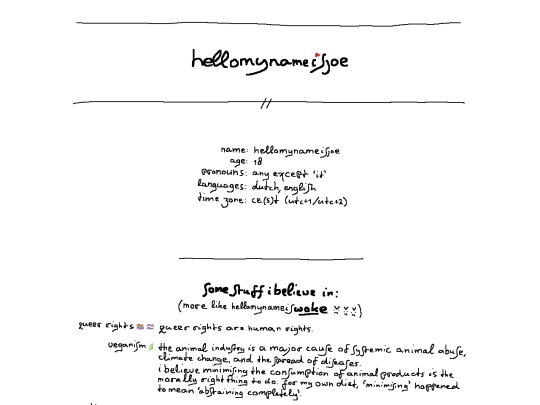 hellomynameisjoe
//
name: hellomynameisjoe
age: 18
pronouns: any except 'it'
languages: dutch, english
time zone: ce(s)t (utc+1/utc+2)
some stuff i believe in:
(more like hellomynameiswoke
queer rights queer rights are human rights.
veganism the animal industry is a major cause of systemic animal abuse,
climate change, and the spread of diseases.
i believe minimising the consumption of animal products is the
morally right thing to do. for my own diet, 'minimising' happened
to mean 'abstaining completely'.